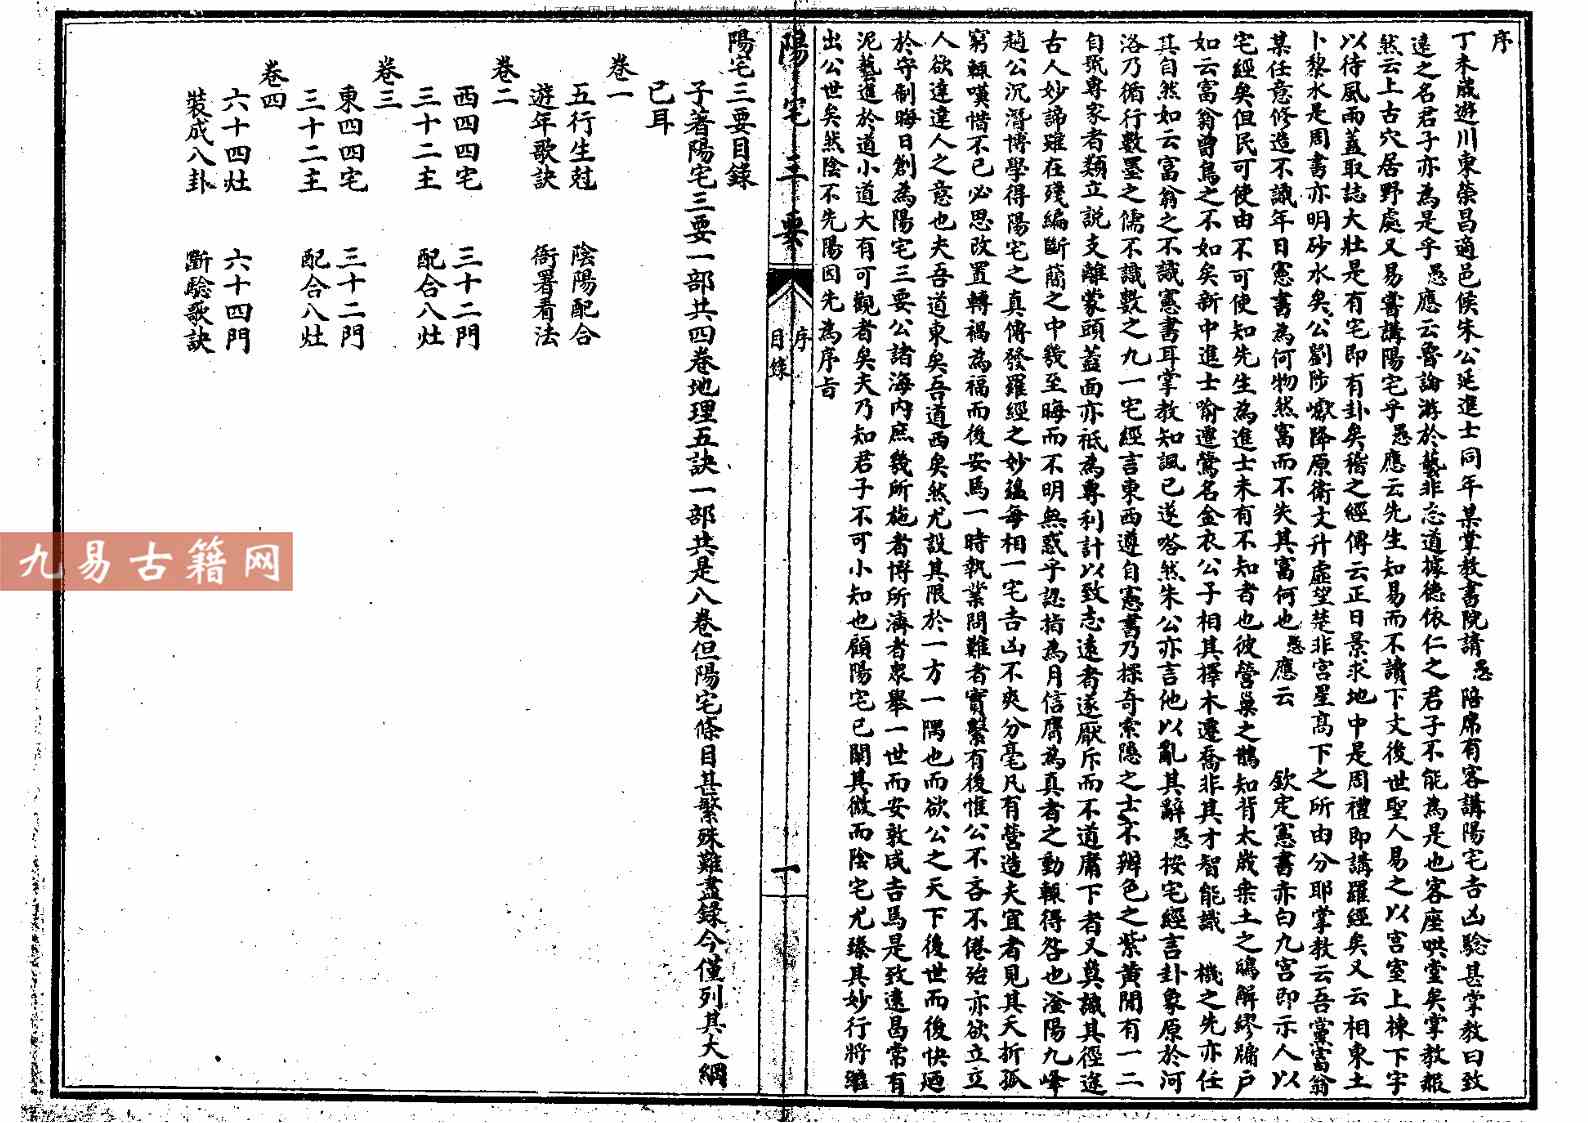 序
丁未歲遊川東榮昌適邑侯朱公延進士同年某掌教書院請愚陪席有客講陽宅吉凶驗甚掌教曰致
遠之名君子亦為是乎愚應云魯論游於藝非忘道據德依仁之君子不能為是也客座哄堂矣掌教赧
然云上古穴居野處又易嘗講陽宅乎愚應云先生知易而不讀下文後世聖人易之以宮室上棟下宇
以待風雨蓋取諸大壯是有宅即有卦矣稽之經傳云正日景求地中是周禮即講羅經矣又云相東土
卜黎水是周書亦明砂水矣公劉陟巘降原衛文升虛望楚非宮星高下之所由分耶掌教云吾黨富翁
某任意修造不識年日憲書為何物然富而不失其富何也愚應云 欽定憲書亦白九宮即示人以
宅經矣但民可使由不可使知先生為進士未有不知者也彼營巢之鵲知背太歲矣土之鴟解繆牖戶
如云富翁曾鳥之不如矣新中進士喻遷鶯名金衣公子相其擇木遷喬非其才智能識 機之先亦任
其自然如云富翁之不識憲書耳掌教知諷已遂嗒然朱公亦言他以亂其辭愚按宅經言卦象原於河
洛乃循行數墨之儒不識數之九一宅經言東西遵自憲書乃探奇索隱之士不辨色之紫黃閒有一二
自號專家者類立說支離蒙頭蓋面亦祗為專利計以致志遠者遂厭斥而不道庸下者又莫識其徑途
古人妙諦雖在殘編斷簡之中幾至晦而不明無惑乎認指為月信贗為真者之動輒得咎也滏陽九峰
趙公沉潛博學得陽宅之真傳發羅經之妙蘊每相一宅吉凶不爽分毫凡有營造夫宜者見其夭折孤
窮輒嘆惜不已必思改置轉禍為福而後安焉一時執業問難者實繁有後惟公不吝不倦殆亦欲立立
人欲達達人之意也夫吾道東矣吾道西矣然尤設其限於一方一隅也而欲公之天下後世而後快迺
於守制晦日創為陽宅三要公諸海內庶幾所施者博所濟者眾舉一世而安敦咸吉焉是致遠昌常有
泥藝進於道小道大有可觀者矣夫乃知君子不可小知也顧陽宅已闡其微而陰宅尤臻其妙行將繼
出公世矣然陰不先陽因先為序旨
陽宅三要
序
目錄
一
陽宅三要目錄
予著陽宅三要一部共四卷地理五訣一部共是八卷但陽宅條目甚繁殊難盡錄今僅列其大綱
已耳
卷一
五行生尅 陰陽配合
遊年歌訣 衙署看法
卷二
西四四宅 三十二門
三十二主 配合八灶
卷三
東四四宅 三十二門
三十二主 配合八灶
卷四
六十四灶 六十四門
裝成八卦 斷驗歌訣
九易古籍网